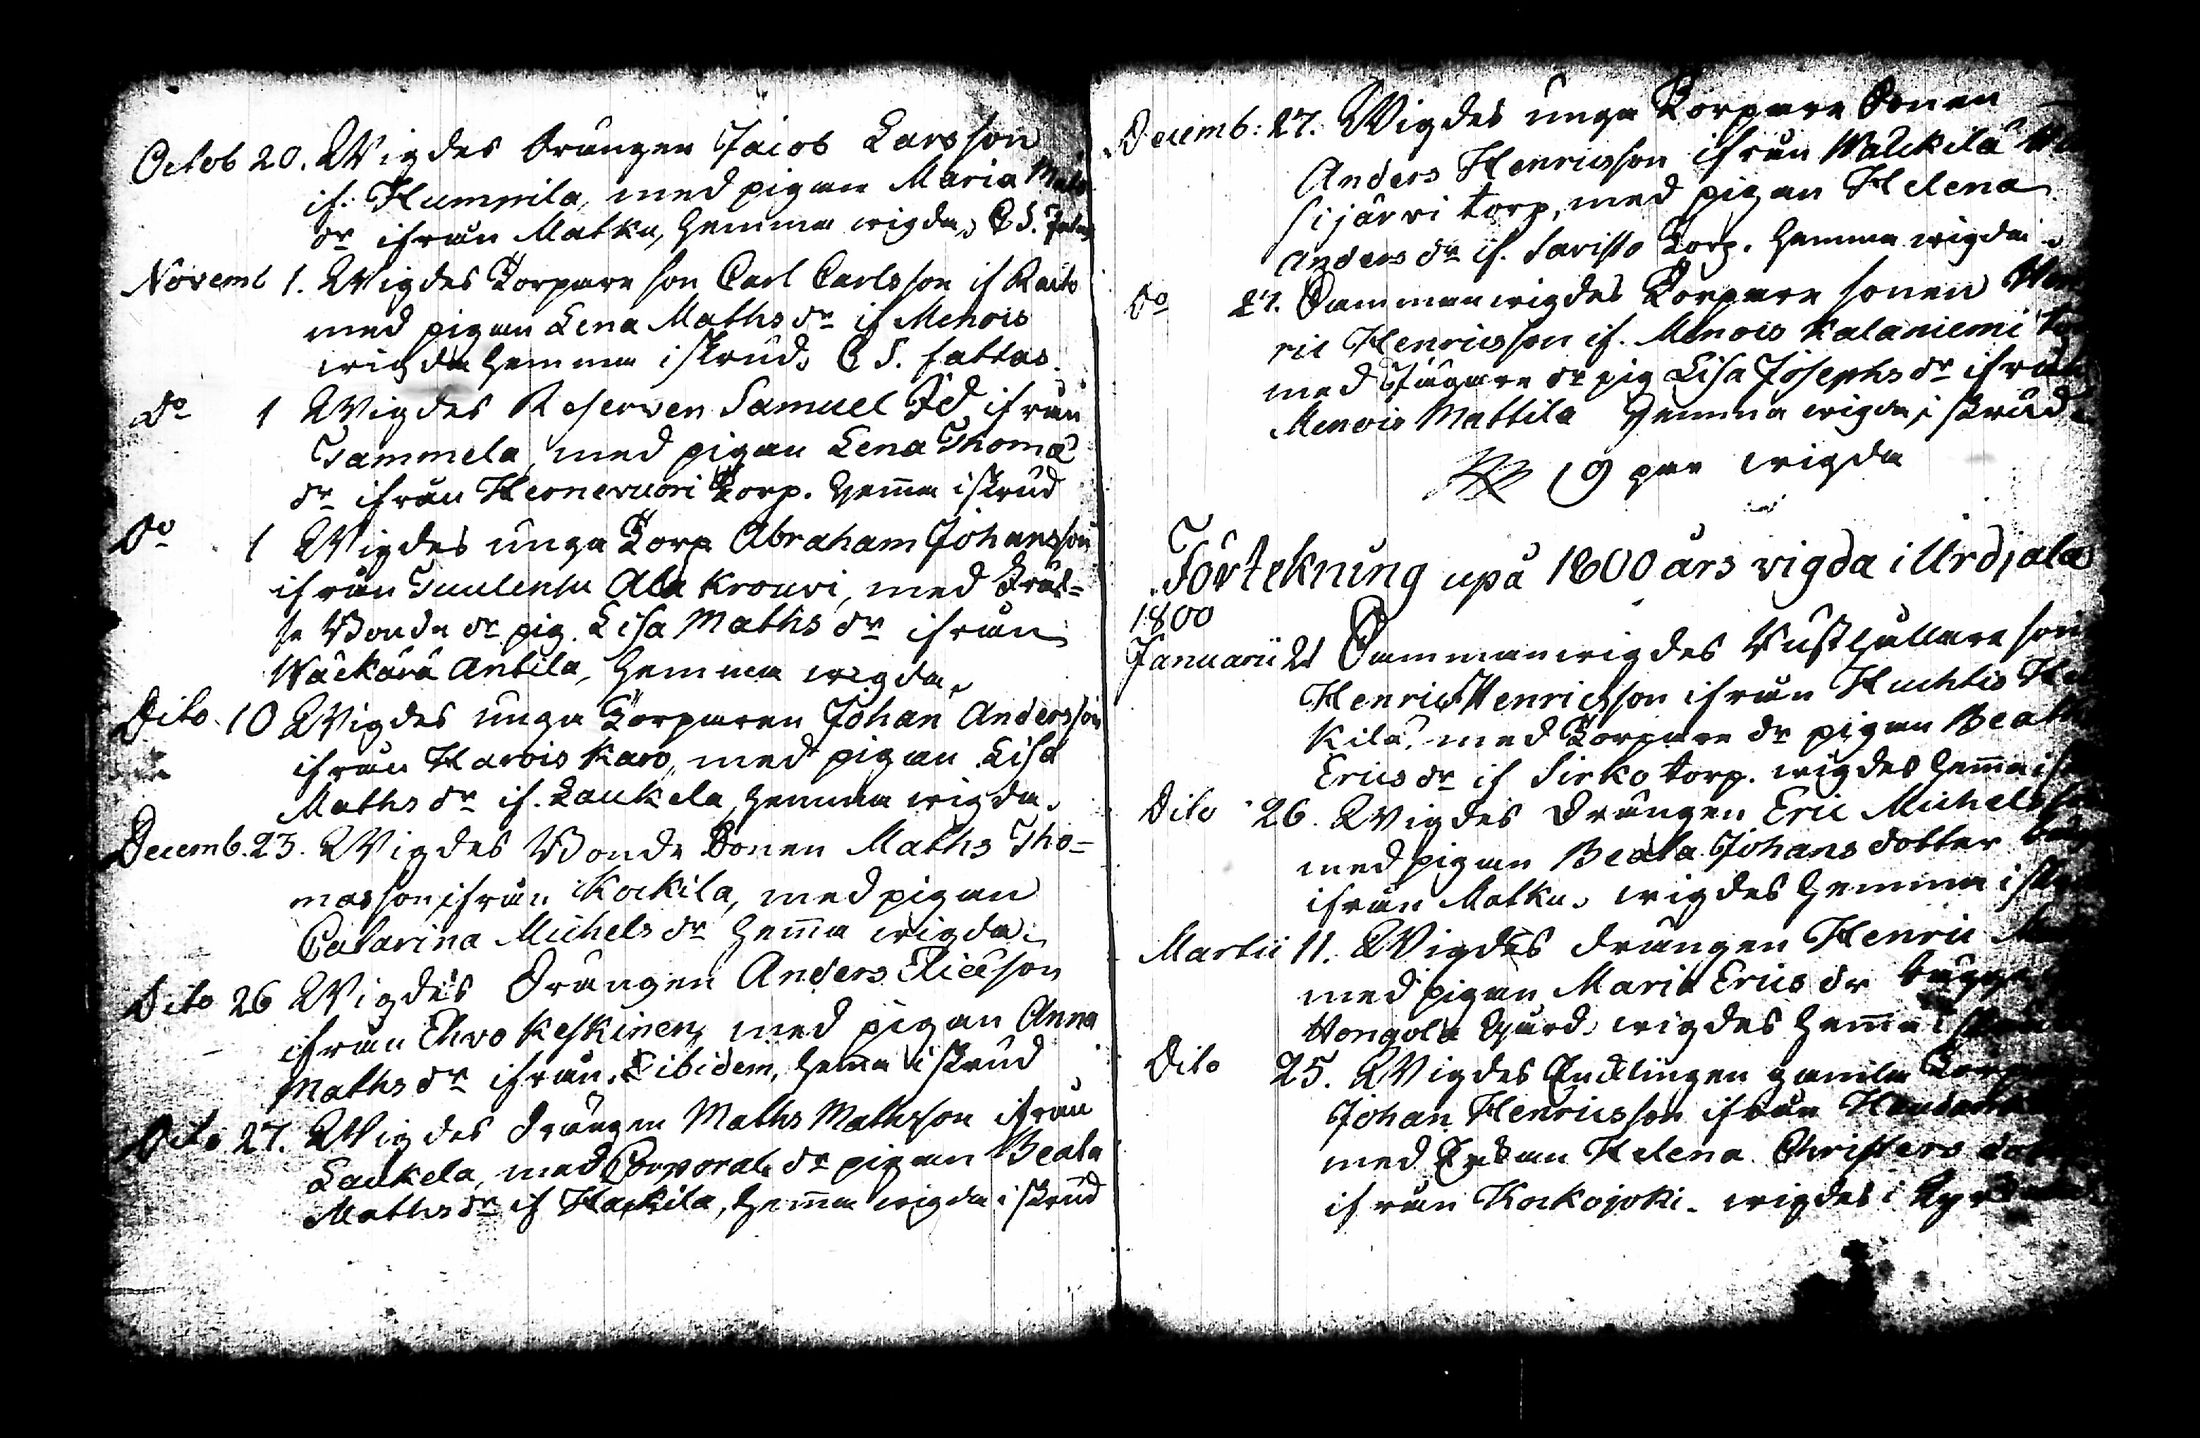 Octob 20. Wigdes drängen Jacob Larsson
if. Hummila, med pigan Maria Maths
dr ifrån Matku, hemma wigda, C S.
Novemb 1. Wigdes Torpare son Carl Carlsson if Raito
med pigan Lena Maths dr if Menois
wigda hemma i skrud. C S. fattas.
do 1 Wigdes Reserven Samuel Id ifrån
Tammela, med pigan Lena Thomæ
dr ifrån Hernevuori Torp. hema i skrud
Do 1 Wigdes unga Torp Abraham Johansson
ifrån Tuulensu Ala krouvi, med
se Bonde dr pig. Lisa Maths dr ifrån
Wäckärä Antila, hemma wigda,
Dito 10 Wigdes unga Torparen Johan Andersson
ifrån Harvis karo, med pigan Lisa
Maths dr if. Laukela, hemma wigda.
Decemb. 23. Wigdes Bonde Sonen Maths Tho=
masson, ifrån Kockila, med pigan
Catarina Michels dr hema wigda.
Dito 26 Wigdes Drängen Anders Ericsson
ifrån Ehro Keskinen, med pigan Anna
Maths dr ifrån ibidem, hema i skrud
Dito 27. Wigdes drängen Maths Mathsson ifrån
Laukela, med Corporals dr pigan Beata
Maths dr if Hackila, hema wigda i skrud
Decemb: 27. Wigdes unga Torpare Sonen
Anders Henricsson ifrån Walckila
sijärvi torp, med pigan Helena
Anders dr if. Saristo Torp. hemma wigda
Do 27. Sammanwigdes Torpare sonen Hen
ric Henricsson if. Menois Kalaniemi
med Jägare dr pig Lisa Josephs dr ifrån
Menois Mattila hemma wigda i skrud
19 par wigda
Förtekning upå 1800 års vigda i Urdjala
1800
Januarii 21 Sammanwigdes Rusthållare son
Henric Henricsson ifrån Huchtis
kilä, med Torpare dr pigan Beata
Erics dr if Sirko torp. wigdes hema i
Dito 26. Wigdes Drängen Eric Michelsson
med pigan Beata Johans dotter
ifrån Matku. wigdes hemma i
Martii 11. Wigdes drängen Henric
med pigan Maria Erics dr
Hongola gård. wigdes hema i
Dito 25. Wigdes Encklingen gamla
Johan Henricsson ifrån
med Enkan Helena Christers
ifrån Kockojoki. wigdes i